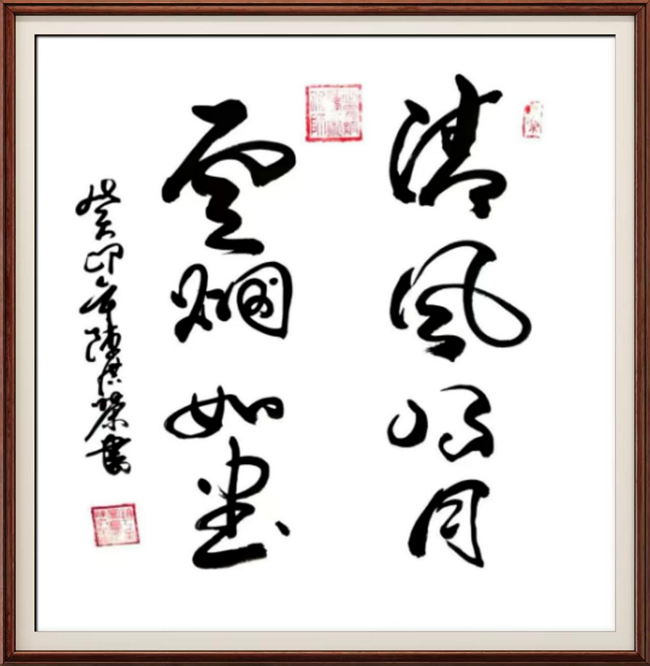 清風明月
雲烟如畫
癸卯年陳洪榮書